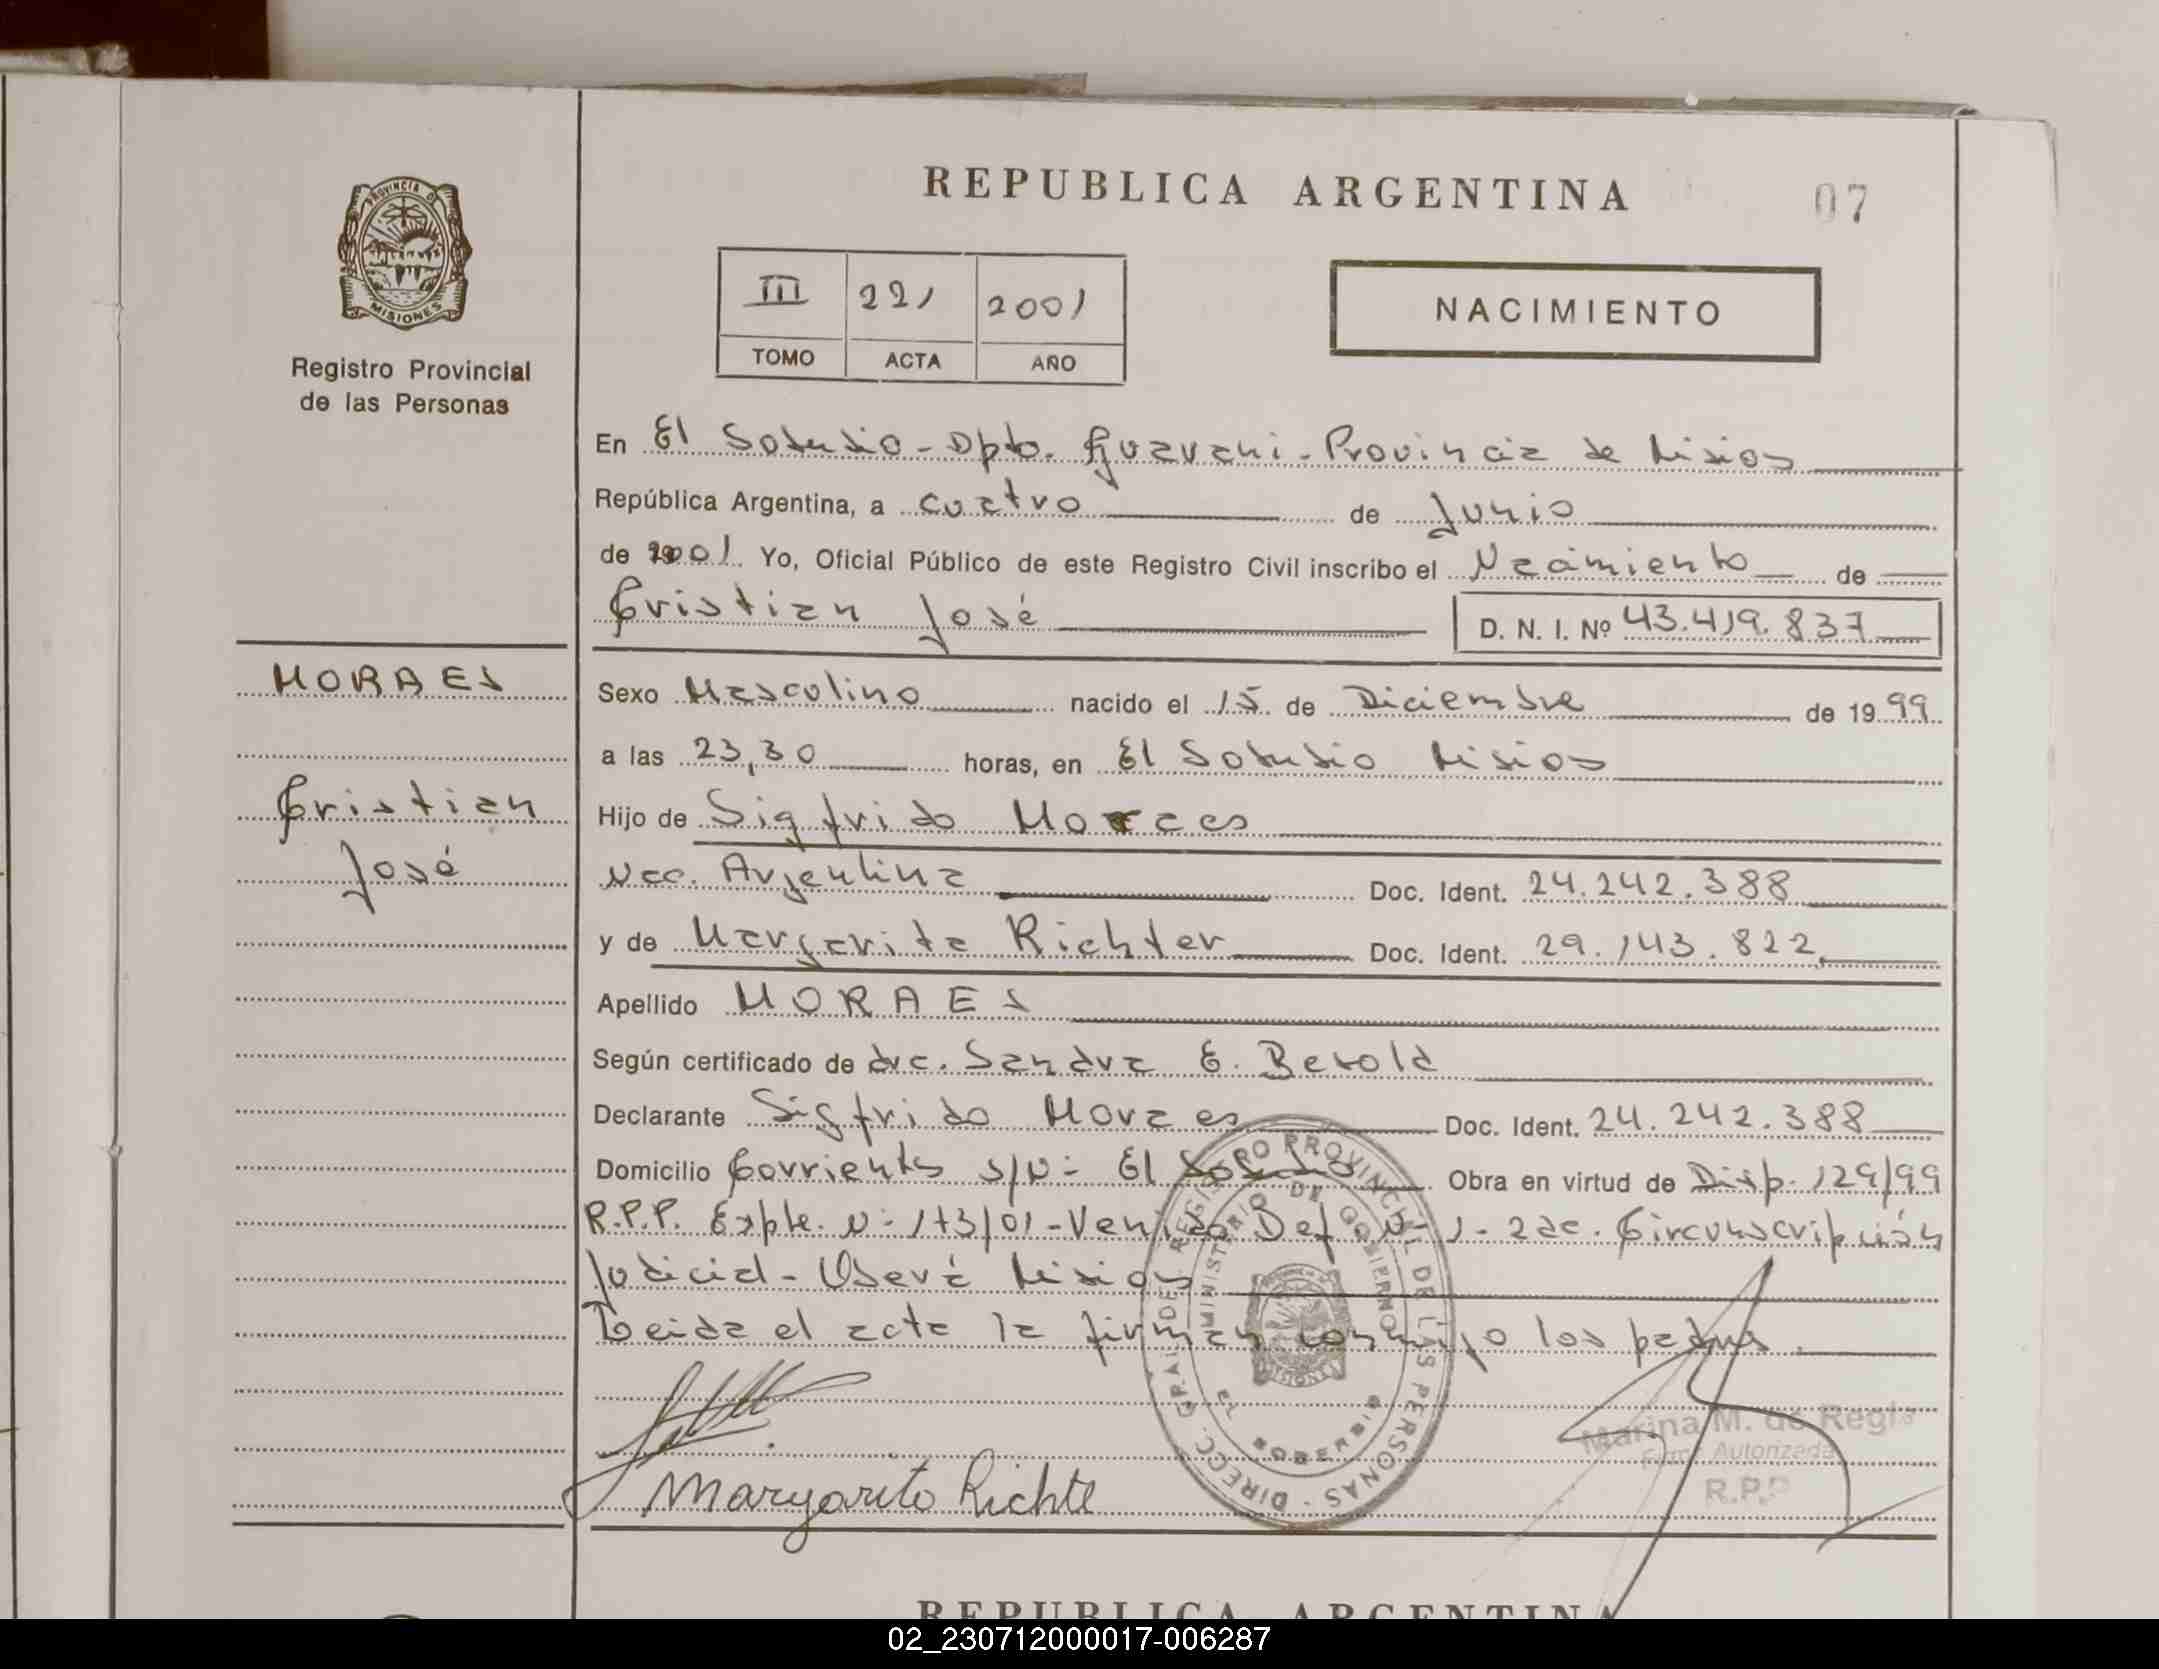 REPUBLICA ARGENTINA
07
PROVINCIA D
MISIONES
Registro Provincial
de las Personas
III 221 2001
TOMO ACTA AÑO
NACIMIENTO
En El Soberbio - Dpto. Guarani - Provincia de Misiones
República Argentina, a cuatro de Junio
de 2001. Yo, Oficial Público de este Registro Civil inscribo el Nacimiento de
Cristian José
D. N. I. Nº 43.419.837
MORAES
Cristian
José
Sexo Masculino nacido el 15 de Diciembre de 1999
a las 23,30 horas, en El Soberbio Misiones
Hijo de Sigfrido Moraes
Nac. Argentina Doc. Ident. 24.242.388
y de Margarita Richter Doc. Ident. 29.143.822
Apellido MORAES
Según certificado de dra. Sandra E. Berold
Declarante Sigfrido Moraes Doc. Ident. 24.242.388
Domicilio Corrientes s/N: El Soberbio Obra en virtud de Disp. 129/99
R.P.P. Expte. N: 173/01 - Def. N: 1 - 2da. Circunscripción
Judicial - Oberá Misiones
Leida el acta la firman conmigo los padres.
DIRECC. GRAL. DEL REGISTRO PROVINCIAL DE LAS PERSONAS
MINISTERIO DE GOBIERNO
EL SOBERBIO
Marina M. de Regis
Firma Autorizada
R.P.P
Margarito Richte
REPUBLICA ARGENTINA
02_230712000017-006287